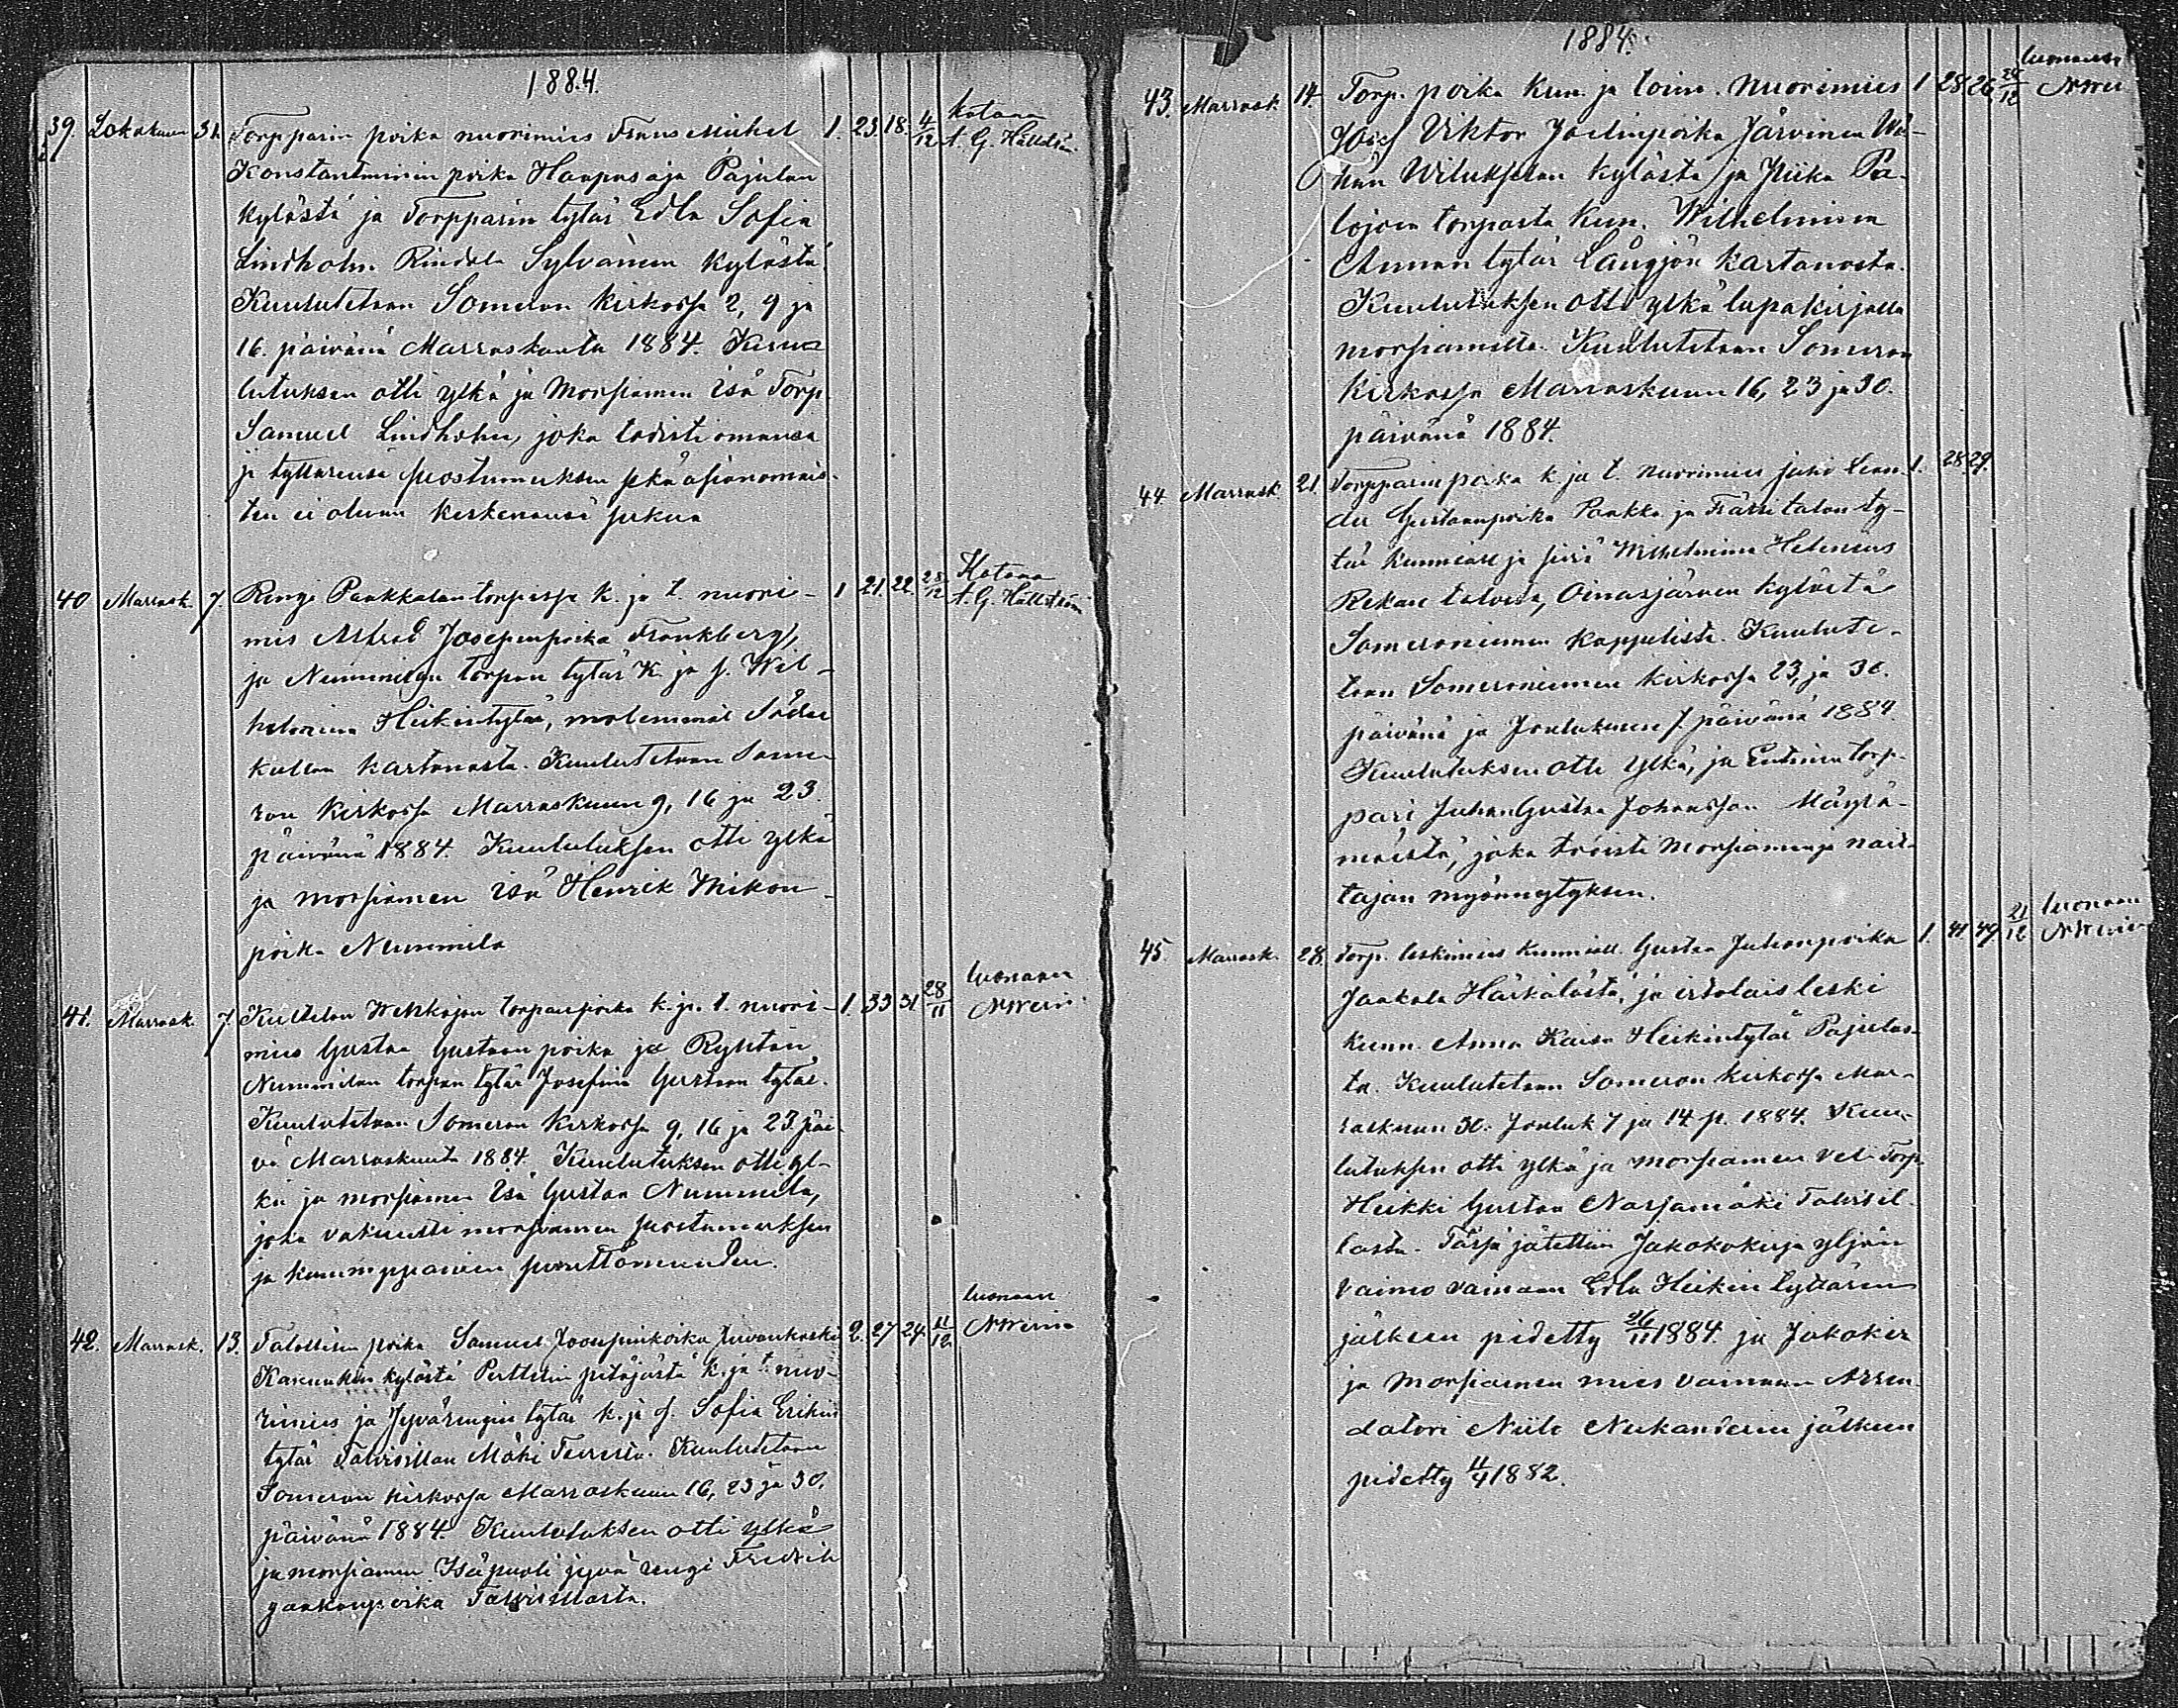 1884.
39. Lokakuun 31. Torpparin poika nuorimies Frans Mikel 1. 23. 18. 4/12 kotona
Konstantinin poika Haapasaja Pajulan A. G. Hällström
kylästä ja Torpparin tytär Edla Sofia
Lindholm Rindela Sylvänän kylästä.
Kuulutetaan Someron kirkossa 2, 9 ja
16. päivänä Marraskuuta 1884. Kuu-
lutuksen otti ylkä ja Morsiamen isä Torp.
Samuel Lindholm, joka todisti omansa
ja tyttärensä suostumuksen sekä asianomais-
ten ei olevan keskenänsä sukua
40 Marrask. 7. Rengi Paakkalan torpassa k. ja t. nuori- 1 21. 22. 28/12 Kotona
mies Alfred Josepinpoika Frankberg, A. G. Hällström
ja Nummilan torpan tytär K. ja s. Wil-
helmina Heikintytär, molemmat Söder
kullan kartanosta. Kuulutetaan Some-
ron kirkossa Marraskuun 9, 16 ja 23.
päivänä 1884. Kuulutuksen otti ylkä
ja morsiamen isä Henrik Mikon
poika Nummila
41. Marrask. 7. torpanpoika k. ja t. nuori- 1. 33 31 28/11 luonaan
mies Gustaa Gustaanpoika ja
Nummilan torpan tytär Josefina Gustaan tytär.
Kuulutetaan Someron kirkossa 9, 16 ja 23. päi-
vä Marraskuuta 1884. Kuulutuksen otti yl-
kä ja morsiamen isä Gustaa Nummila,
joka vakuutti morsiamen suostumuksen
ja kumppanien
42. Marrask. 13. Talollisen poika Samuel Joosepinpoika 2. 27 24. 11/12 luonaan
kylästä Perttelin pitäjästä k. ja t. nuo-
rimies ja Jyvärengin tytär k. ja s. Sofia Erikin
tytär Talvisillan Mäki Kuulutetaan
Someron kirkossa Marraskuun 16, 23 ja 30.
päivänä 1884. Kuulutuksen otti ylkä
ja morsiamen Isäpuoli jyvä rengi Fredrik
Jaakonpoika Talvisillasta.
1884.
43. Marrask. 14. Torp. poika kun. ja toim. nuorimies 1 28. 26 28/12 luonaan
Josef Viktor Joelinpoika Järvinen Wä-
hän Wilukselan kylästä ja Piika Pa-
lojoen torpasta kun. Wilhelmina
Annan tytär Långsjön kartanosta.
Kuulutuksen otti ylkä lupakirjalla
morsiamelta. Kuulutetaan Someron
kirkossa Marraskuun 16, 23 ja 30.
päivänä 1884.
44. Marrask. 21. Torpparin poika k. ja t. nuorimies Juho Lean- 1. 28. 29.
der Gustaanpoika Paakka ja talon ty-
tär kunniall. ja siviä Wilhelmina Helenius
talosta, Oinasjärven kylästä
Someroniemen kappelista. Kuulute-
taan Someroniemen kirkossa 23, ja 30.
päivänä ja Joulukuun 7. päivänä 1884.
Kuulutuksen otti ylkä, ja torp-
pari Juhan Gustaa Johansson
joka todisti Morsiamen ja nait-
tajan myönnytyksen.
45. Marrask. 28. Torp. leskimies kunniall. Gustaa Juhanpoika 1. 41 49 21/12 luonaan
Jaakola Härkälästä, ja irtolaisleski
kunn. Anna Kaisa Heikintytär Pajulas-
ta. Kuulutetaan Someron kirkossa Mar-
raskuun 30. Jouluk 7 ja 14. p. 1884. Kuu-
lutuksen otti ylkä ja morsiamen veli Torp.
Heikki Gustaa Talvisil-
lasta. Tässä jätettiin Jakokirja yljän
vaimo vainaan Edla Heikin tyttären
jälkeen pidetty 26/11 1884. ja Jakokir
ja Morsiamen mies vainaan Arren-
datori Niilo Nukanderin jälkeen
pidetty 11/4 1882.